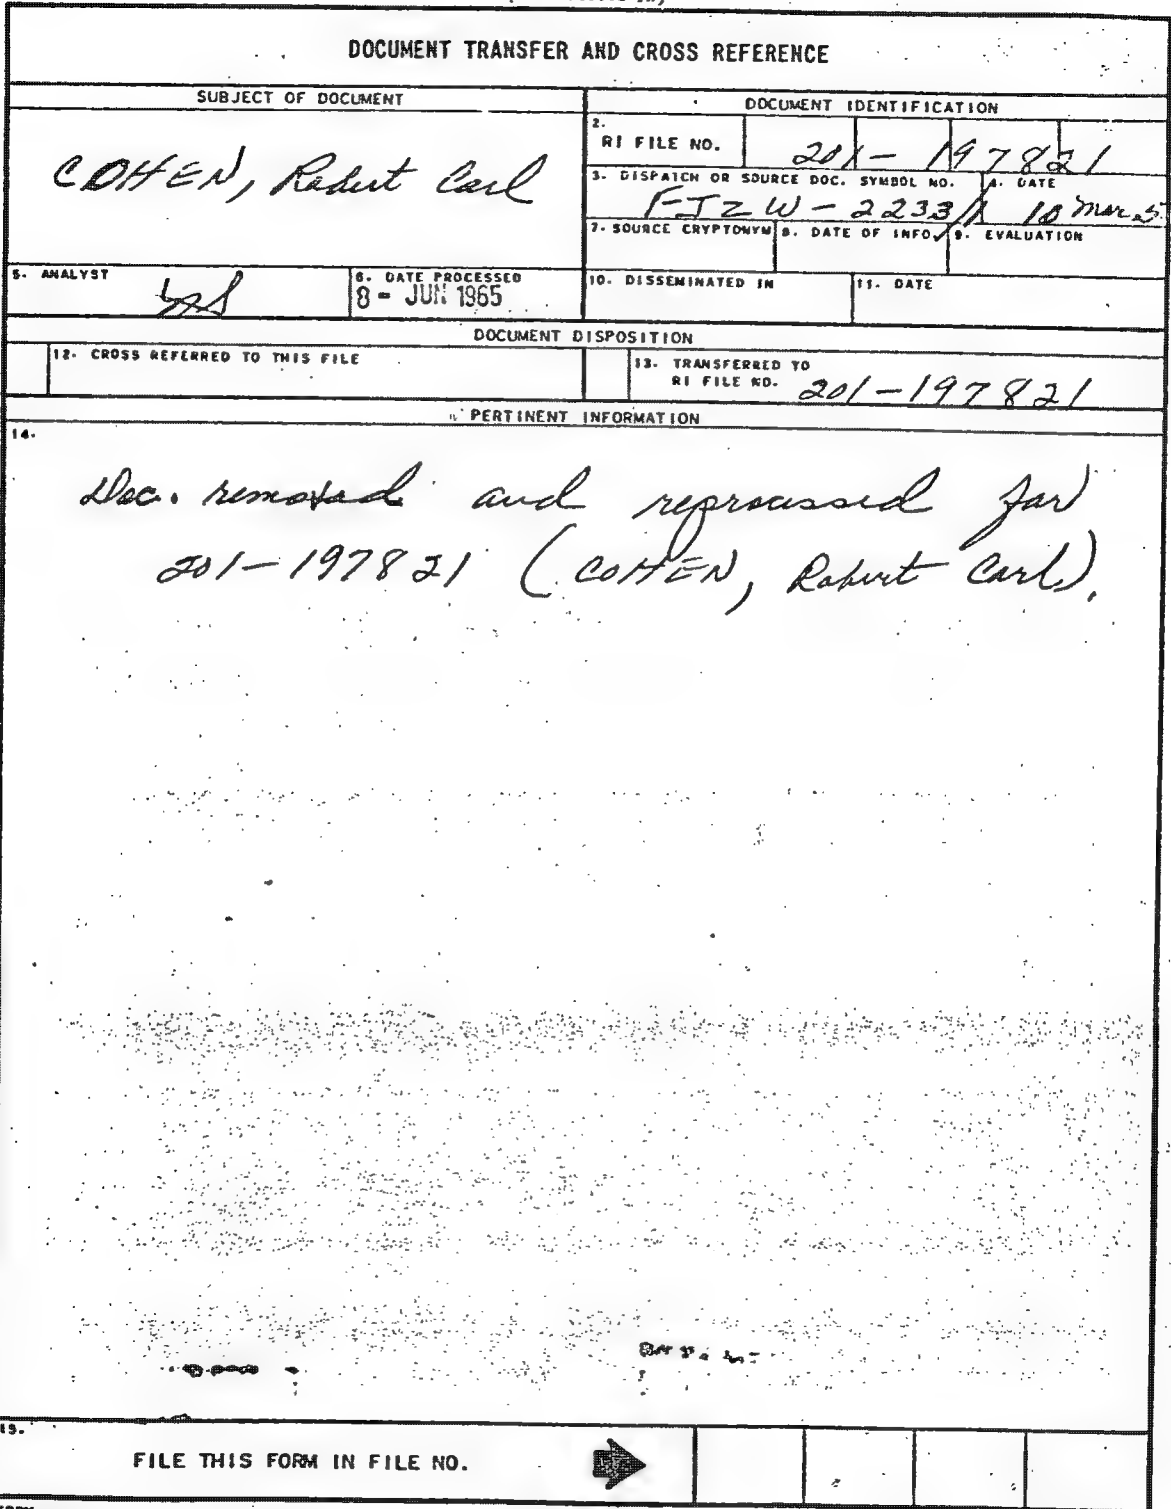 DOCUMENT TRANSFER AND CROSS REFERENCE
SUBJECT OF DOCUMENT
COHEN, Robert Carl
DOCUMENT IDENTIFICATION
2. RI FILE NO.
201-197821
3. DISPATCH OR SOURCE DOC. SYMBOL NO.
4. DATE
10 Mar 5
7. SOURCE CRYPTONYM
8. DATE OF INFO.
9. EVALUATION
5. ANALYST
6. DATE PROCESSED
8 - JUN 1965
10. DISSEMINATED IN
11. DATE
DOCUMENT DISPOSITION
12. CROSS REFERRED TO THIS FILE
13. TRANSFERRED TO
RI FILE NO. 201-197821
PERTINENT INFORMATION
14.
Doc. removed and reprocessed for
201-197821 (COHEN, Robert Carl).
15.
FILE THIS FORM IN FILE NO.